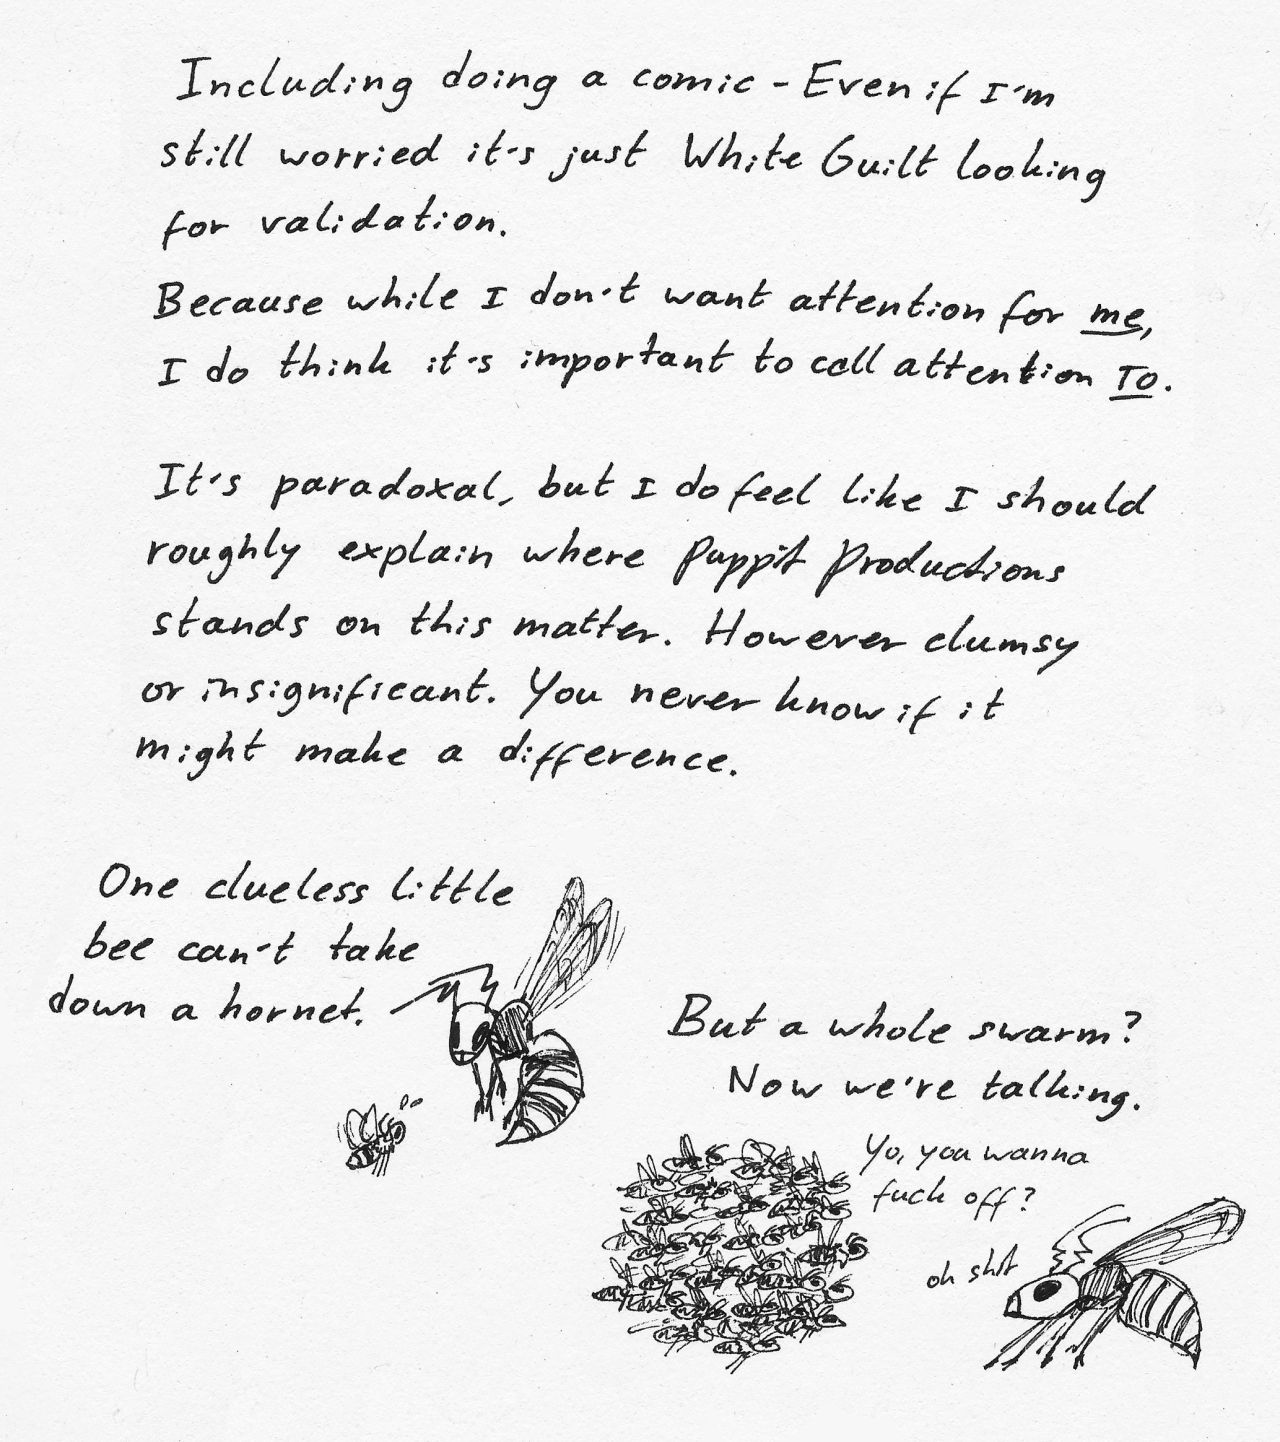 Including doing a comic - Even if I'm
still worried it's just White Guilt looking
for validation.
Because while I don't want attention for me,
I do think it's important to call attention TO.
It's paradoxal, but I do feel like I should
roughly explain where Puppit Productions
stands on this matter. However clumsy
or insignificant. You never know if it
might make a difference.
One clueless little
bee can't take
down a hornet.
But a whole swarm?
Now we're talking.
Yo, you wanna
fuck off?
oh shit